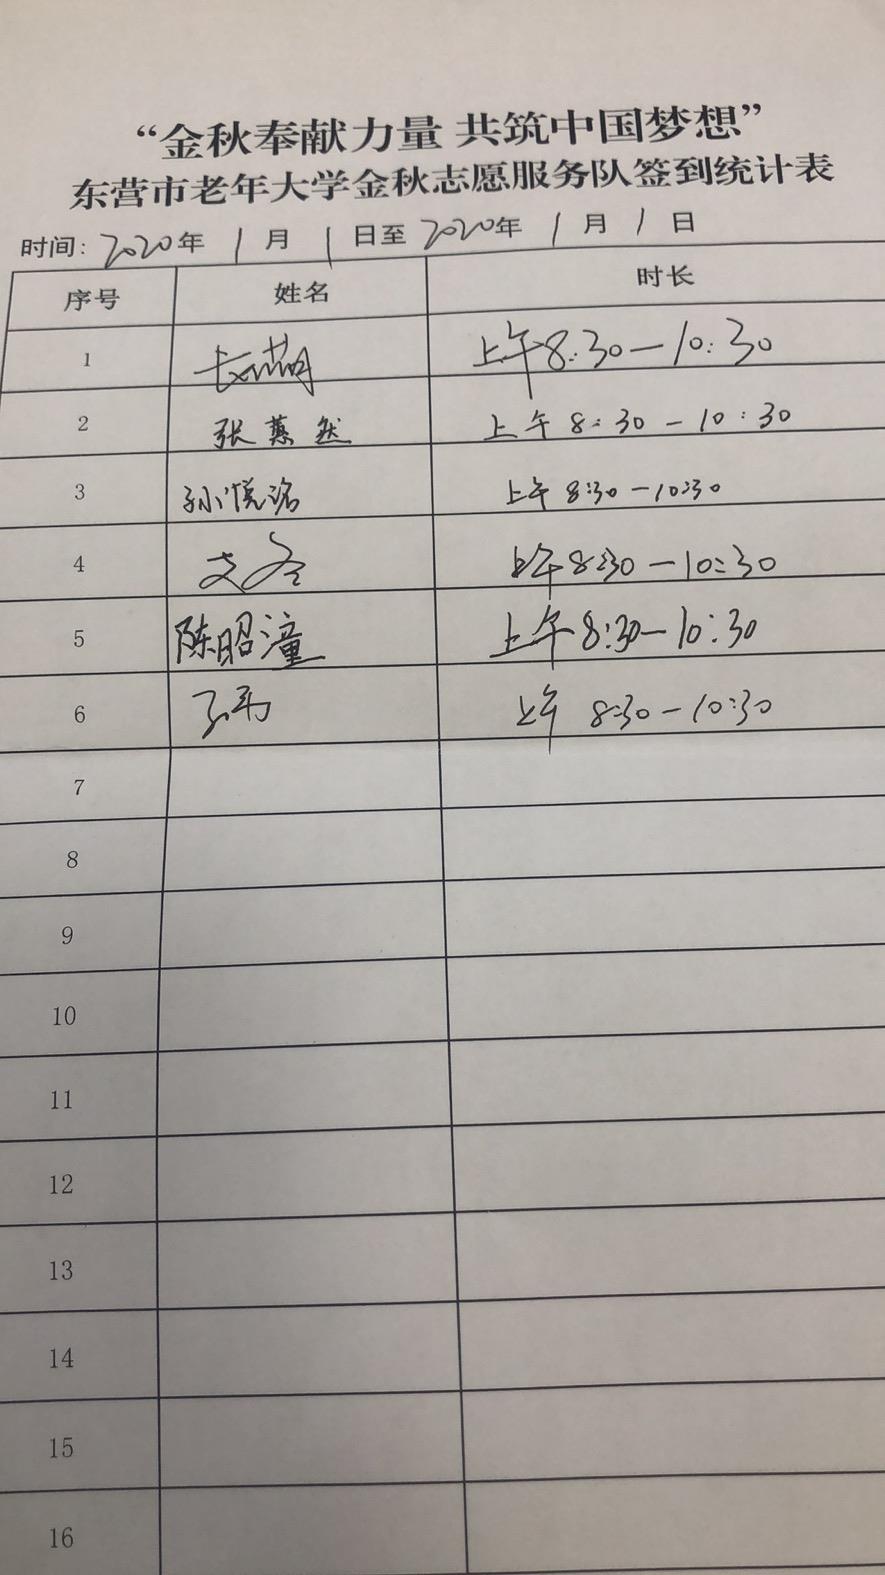 “金秋奉献力量 共筑中国梦想”
东营市老年大学金秋志愿服务队签到统计表
时间: 2020年 1 月 1 日至 2020年 1 月 1 日
序号 姓名 时长
1 上午8:30—10:30
2 张蕙然 上午 8:30 — 10:30
3 孙悦洺 上午 8:30 —10:30
4 上午8:30 —10:30
5 陈昭潼 上午8:30—10:30
6 上午 8:30 —10:30
7
8
9
10
11
12
13
14
15
16